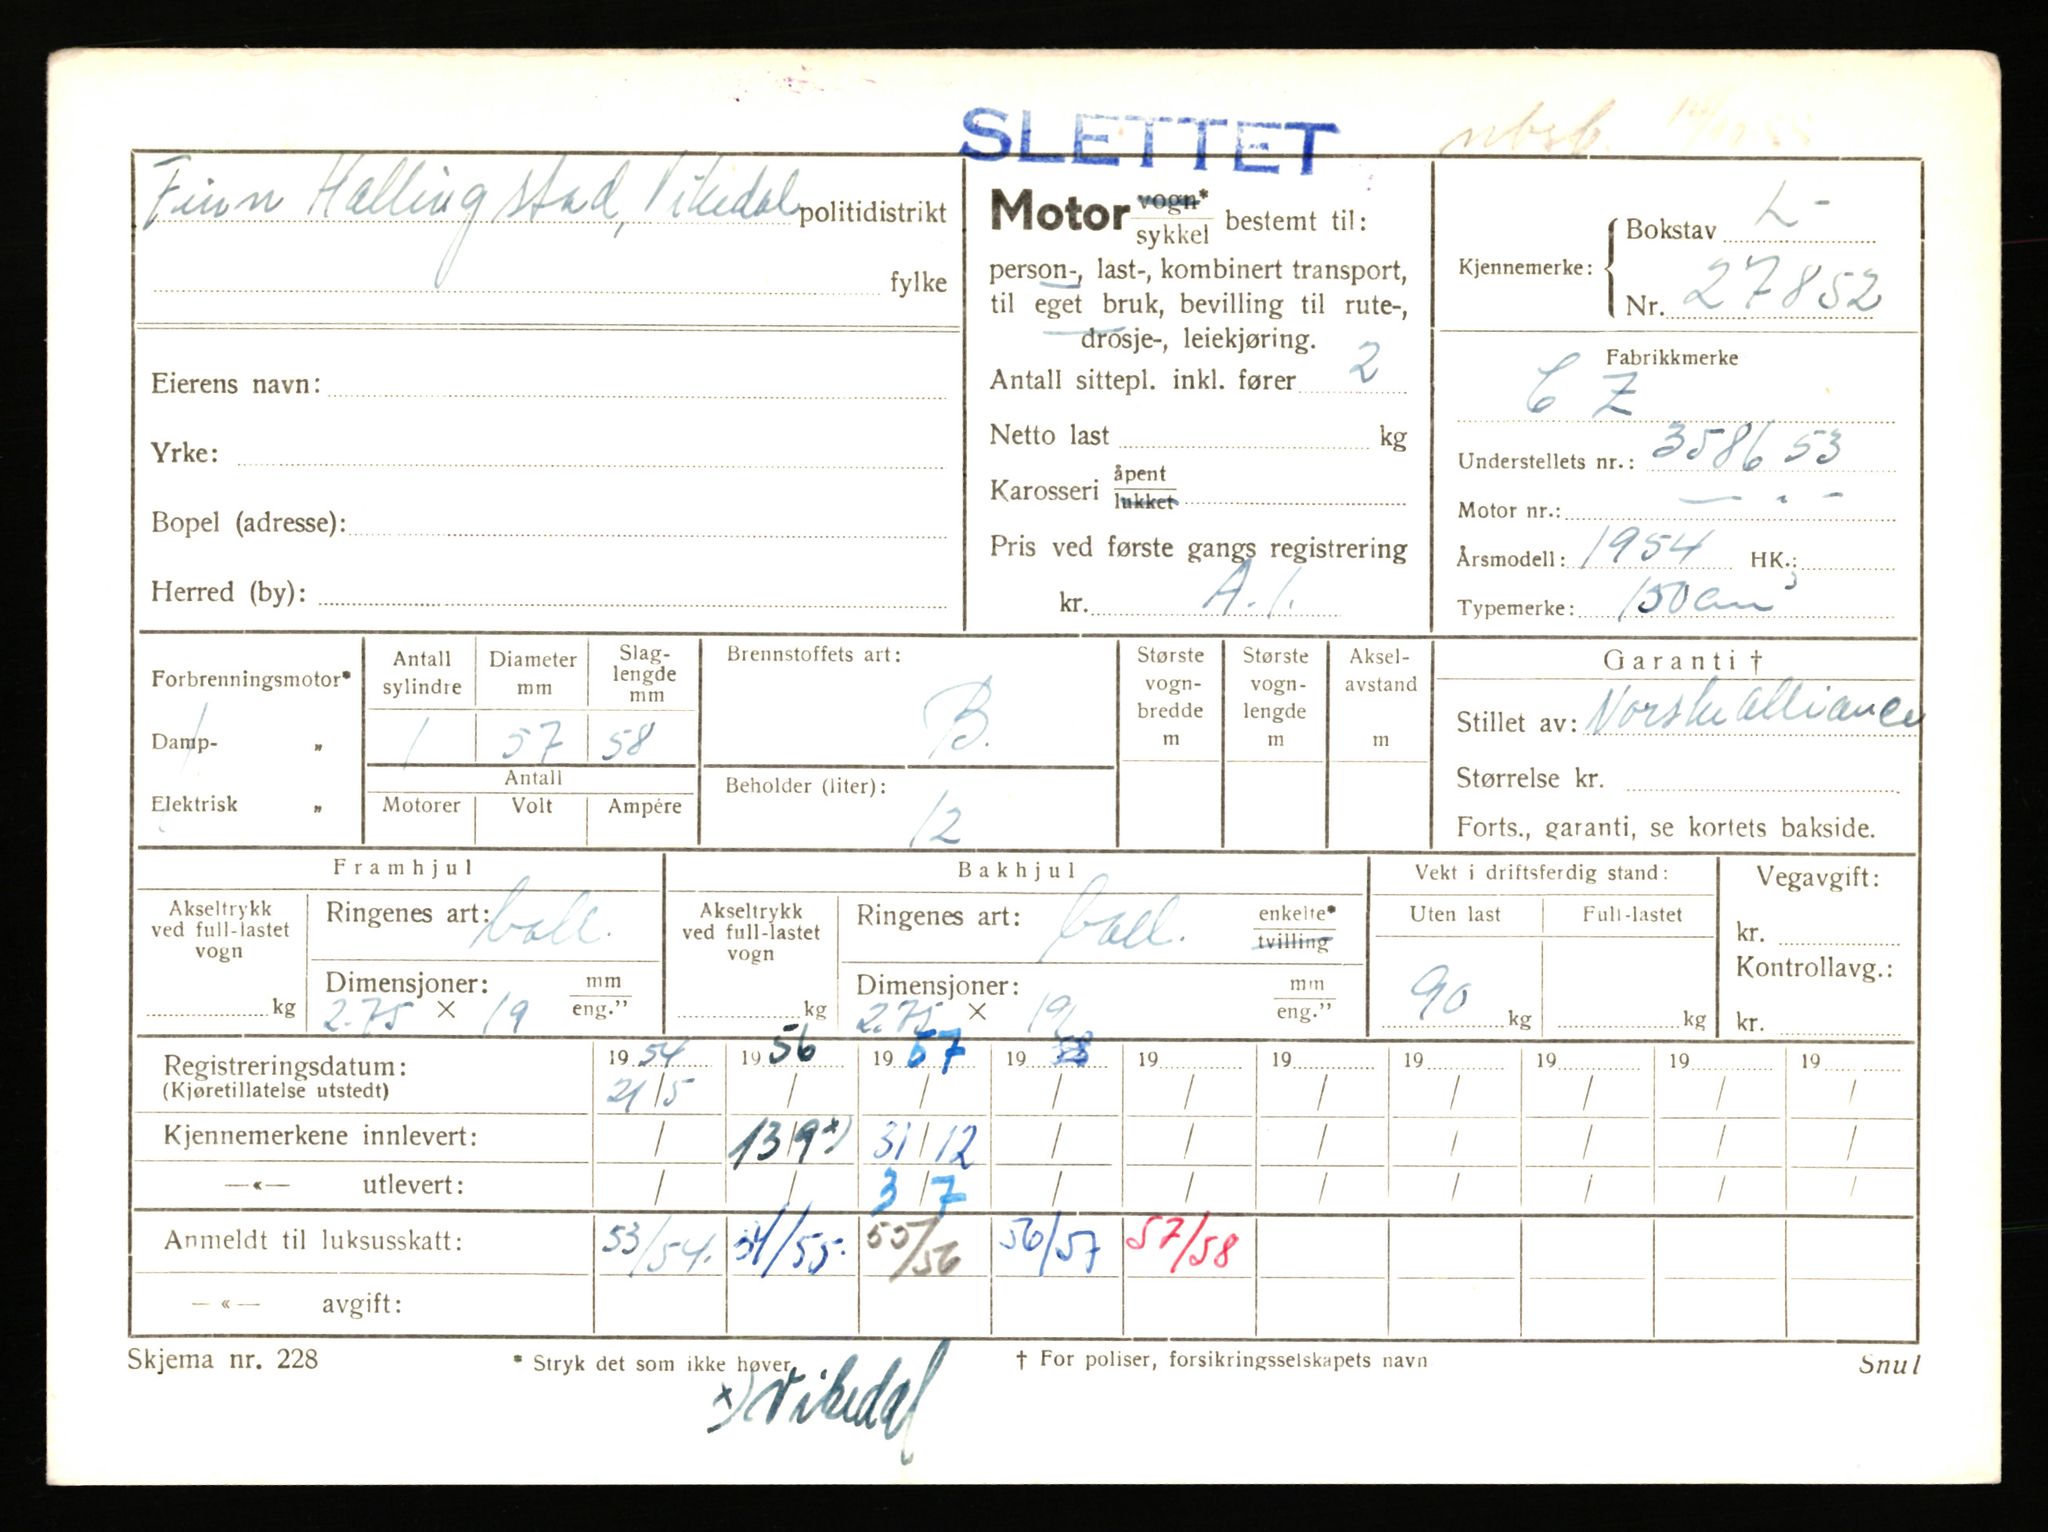 SLETTET
Finn Hallingstad, Vikedal politidistrikt
fylke
Eierens navn:
Yrke:
Bopel (adresse):
Herred (by):
Motor vogn* / sykkel bestemt til:
person-, last-, kombinert transport,
til eget bruk, bevilling til rute-,
drosje-, leiekjøring.
Antall sittepl. inkl. fører 2
Netto last kg
Karosseri åpent / lukket
Pris ved første gangs registrering
kr. A.1.
Kjennemerke: Bokstav L-
Nr. 27852
Fabrikkmerke
CZ
Understellets nr.: 358653
Motor nr.: — " —
Årsmodell: 1954 HK.:
Typemerke: 150 cm³
Forbrenningsmotor*
Damp- „
Elektrisk „
Antall sylindre Diameter mm Slaglengde mm
1 57 58
Antall
Motorer Volt Ampére
Brennstoffets art:
B.
Beholder (liter):
12
Største vognbredde m
Største vognlengde m
Akselavstand m
Garanti †
Stillet av: Norske Alliance
Størrelse kr.
Forts., garanti, se kortets bakside.
Framhjul
Akseltrykk ved full-lastet vogn
kg
Ringenes art: ball.
Dimensjoner: mm / eng."
2.75 × 19
Bakhjul
Akseltrykk ved full-lastet vogn
kg
Ringenes art: ball. enkelte* / tvilling
Dimensjoner: mm / eng."
2.75 × 19
Vekt i driftsferdig stand:
Uten last Full-lastet
90 kg kg
Vegavgift:
kr.
Kontrollavg.:
kr.
Registreringsdatum: 19 54 19 56 19 57 19 58 19 19 19 19 19 19
(Kjøretillatelse utstedt) 21/5 / / / / / / / / /
Kjennemerkene innlevert: / 13/9 x) 31/12 / / / / / / /
—«— utlevert: / / 3/7 / / / / / / /
Anmeldt til luksusskatt: 53/54. 54/55. 55/56 56/57 57/58
—«— avgift:
Skjema nr. 228 * Stryk det som ikke høver. † For poliser, forsikringsselskapets navn Snul
x) Vikedal